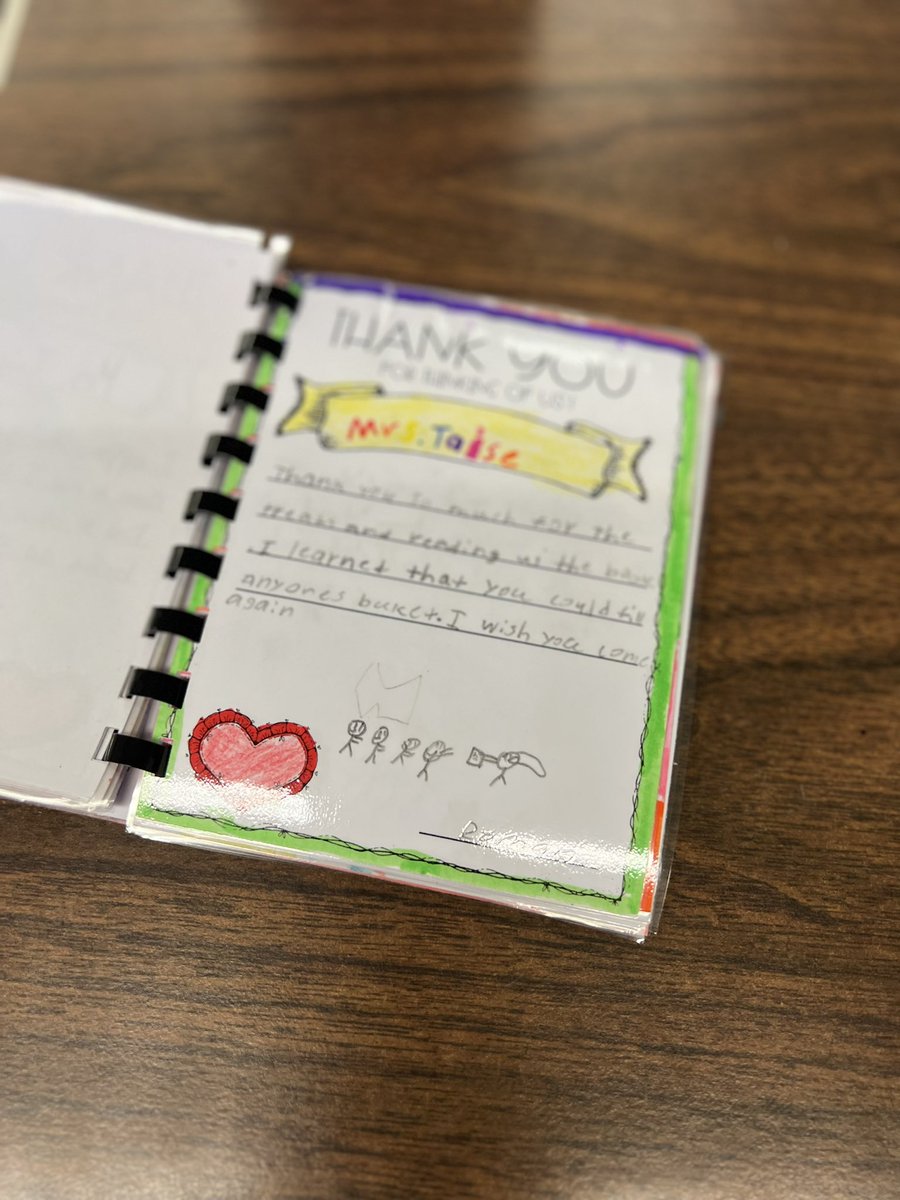 THANK YOU
FOR THINKING OF US!
Mrs. Taise
Thank you so much for the
treats and reading us the book
I learned that you could fill
anyones bucket. I wish you come
again